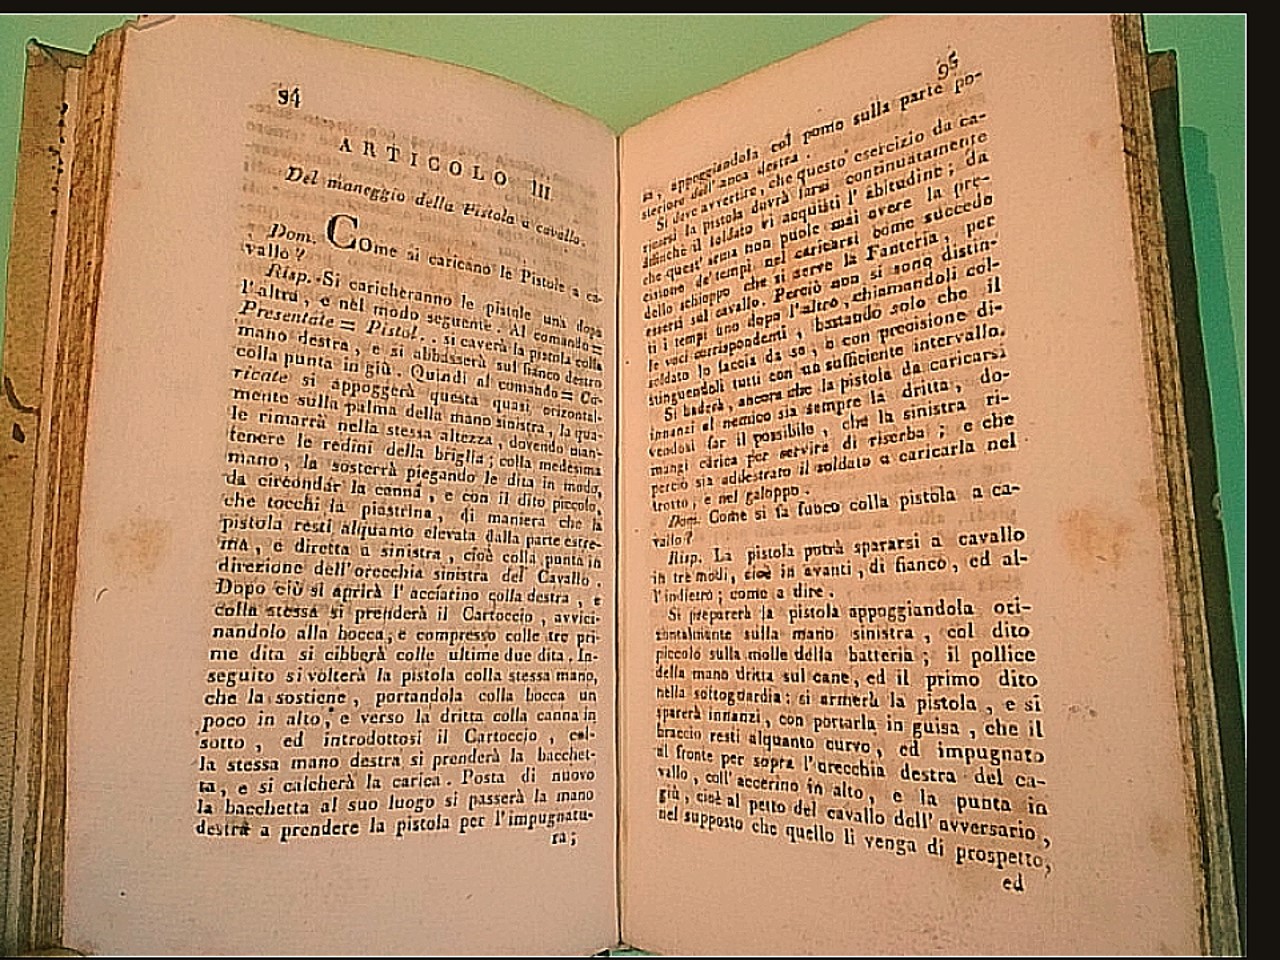 94
ARTICOLO III.
Del maneggio della Pistola a cavallo.
Dom. Come si caricano le Pistole a ca-
vallo?
Risp. Si caricheranno le pistole una dopo
l'altra, e nel modo seguente. Al comando =
Presentate = Pistol.. si caverà la pistola colla
mano destra, e si abbasserà sul fianco destro
colla punta in giù. Quindi al comando = Ca-
ricate si appoggerà questa quasi orizontal-
mente sulla palma della mano sinistra, la qua-
le rimarrà nella stessa altezza, dovendo man-
tenere le redini della briglia; colla medesima
mano, la sosterrà piegando le dita in modo,
da circondar la canna, e con il dito piccolo,
che tocchi la piastrina, di maniera che la
pistola resti alquanto elevata dalla parte estre-
ma, e diretta a sinistra, cioè colla punta in
direzione dell'orecchia sinistra del Cavallo.
Dopo ciò si aprirà l'acciarino colla destra, e
colla stessa si prenderà il Cartoccio, avvici-
nandolo alla bocca, e compresso colle tre pri-
me dita si cibberà colle ultime due dita. In-
seguito si volterà la pistola colla stessa mano,
che la sostiene, portandola colla bocca un
poco in alto, e verso la dritta colla canna in
sotto, ed introdottosi il Cartoccio, col-
la stessa mano destra si prenderà la bacchet-
ta, e si calcherà la carica. Posta di nuovo
la bacchetta al suo luogo si passerà la mano
destra a prendere la pistola per l'impugnatu-
ra;
95
ra, appoggiandola col pomo sulla parte po-
steriore dell'anca destra.
Si deve avvertire, che questo esercizio da ca-
ricarsi la pistola dovrà farsi continuatamente
affinchè il soldato vi acquisti l'abitudine; da
che quest'arma non puole mai avere la pre-
cisione de' tempi nel caricarsi come succede
dello schioppo che si serve la Fanteria, per
essersi sul cavallo. Perciò non si sono distin-
ti i tempi uno dopo l'altro, chiamandoli col-
le voci corrispondenti, bastando solo che il
soldato lo faccia da se, e con precisione di-
stinguendoli tutti con un sufficiente intervallo.
Si baderà, ancora che la pistola da caricarsi
innanzi al nemico sia sempre la dritta, do-
vendosi far il possibile, che la sinistra ri-
mangi carica per servire di riserba; e che
perciò sia addestrato il soldato a caricarla nel
trotto, e nel galoppo.
Dom. Come si fa fuoco colla pistola a ca-
vallo?
Risp. La pistola potrà spararsi a cavallo
in tre modi, cioè in avanti, di fianco, ed al-
l'indietro; come a dire.
Si preparerà la pistola appoggiandola ori-
zontalmente sulla mano sinistra, col dito
piccolo sulla molle della batteria; il pollice
della mano dritta sul cane, ed il primo dito
nella sottoguardia: si armerà la pistola, e si
sparerà innanzi, con portarla in guisa, che il
braccio resti alquanto curvo, ed impugnato
al fronte per sopra l'orecchia destra del ca-
vallo, coll'accerino in alto, e la punta in
giù, cioè al petto del cavallo dell'avversario,
nel supposto che quello li venga di prospetto,
ed